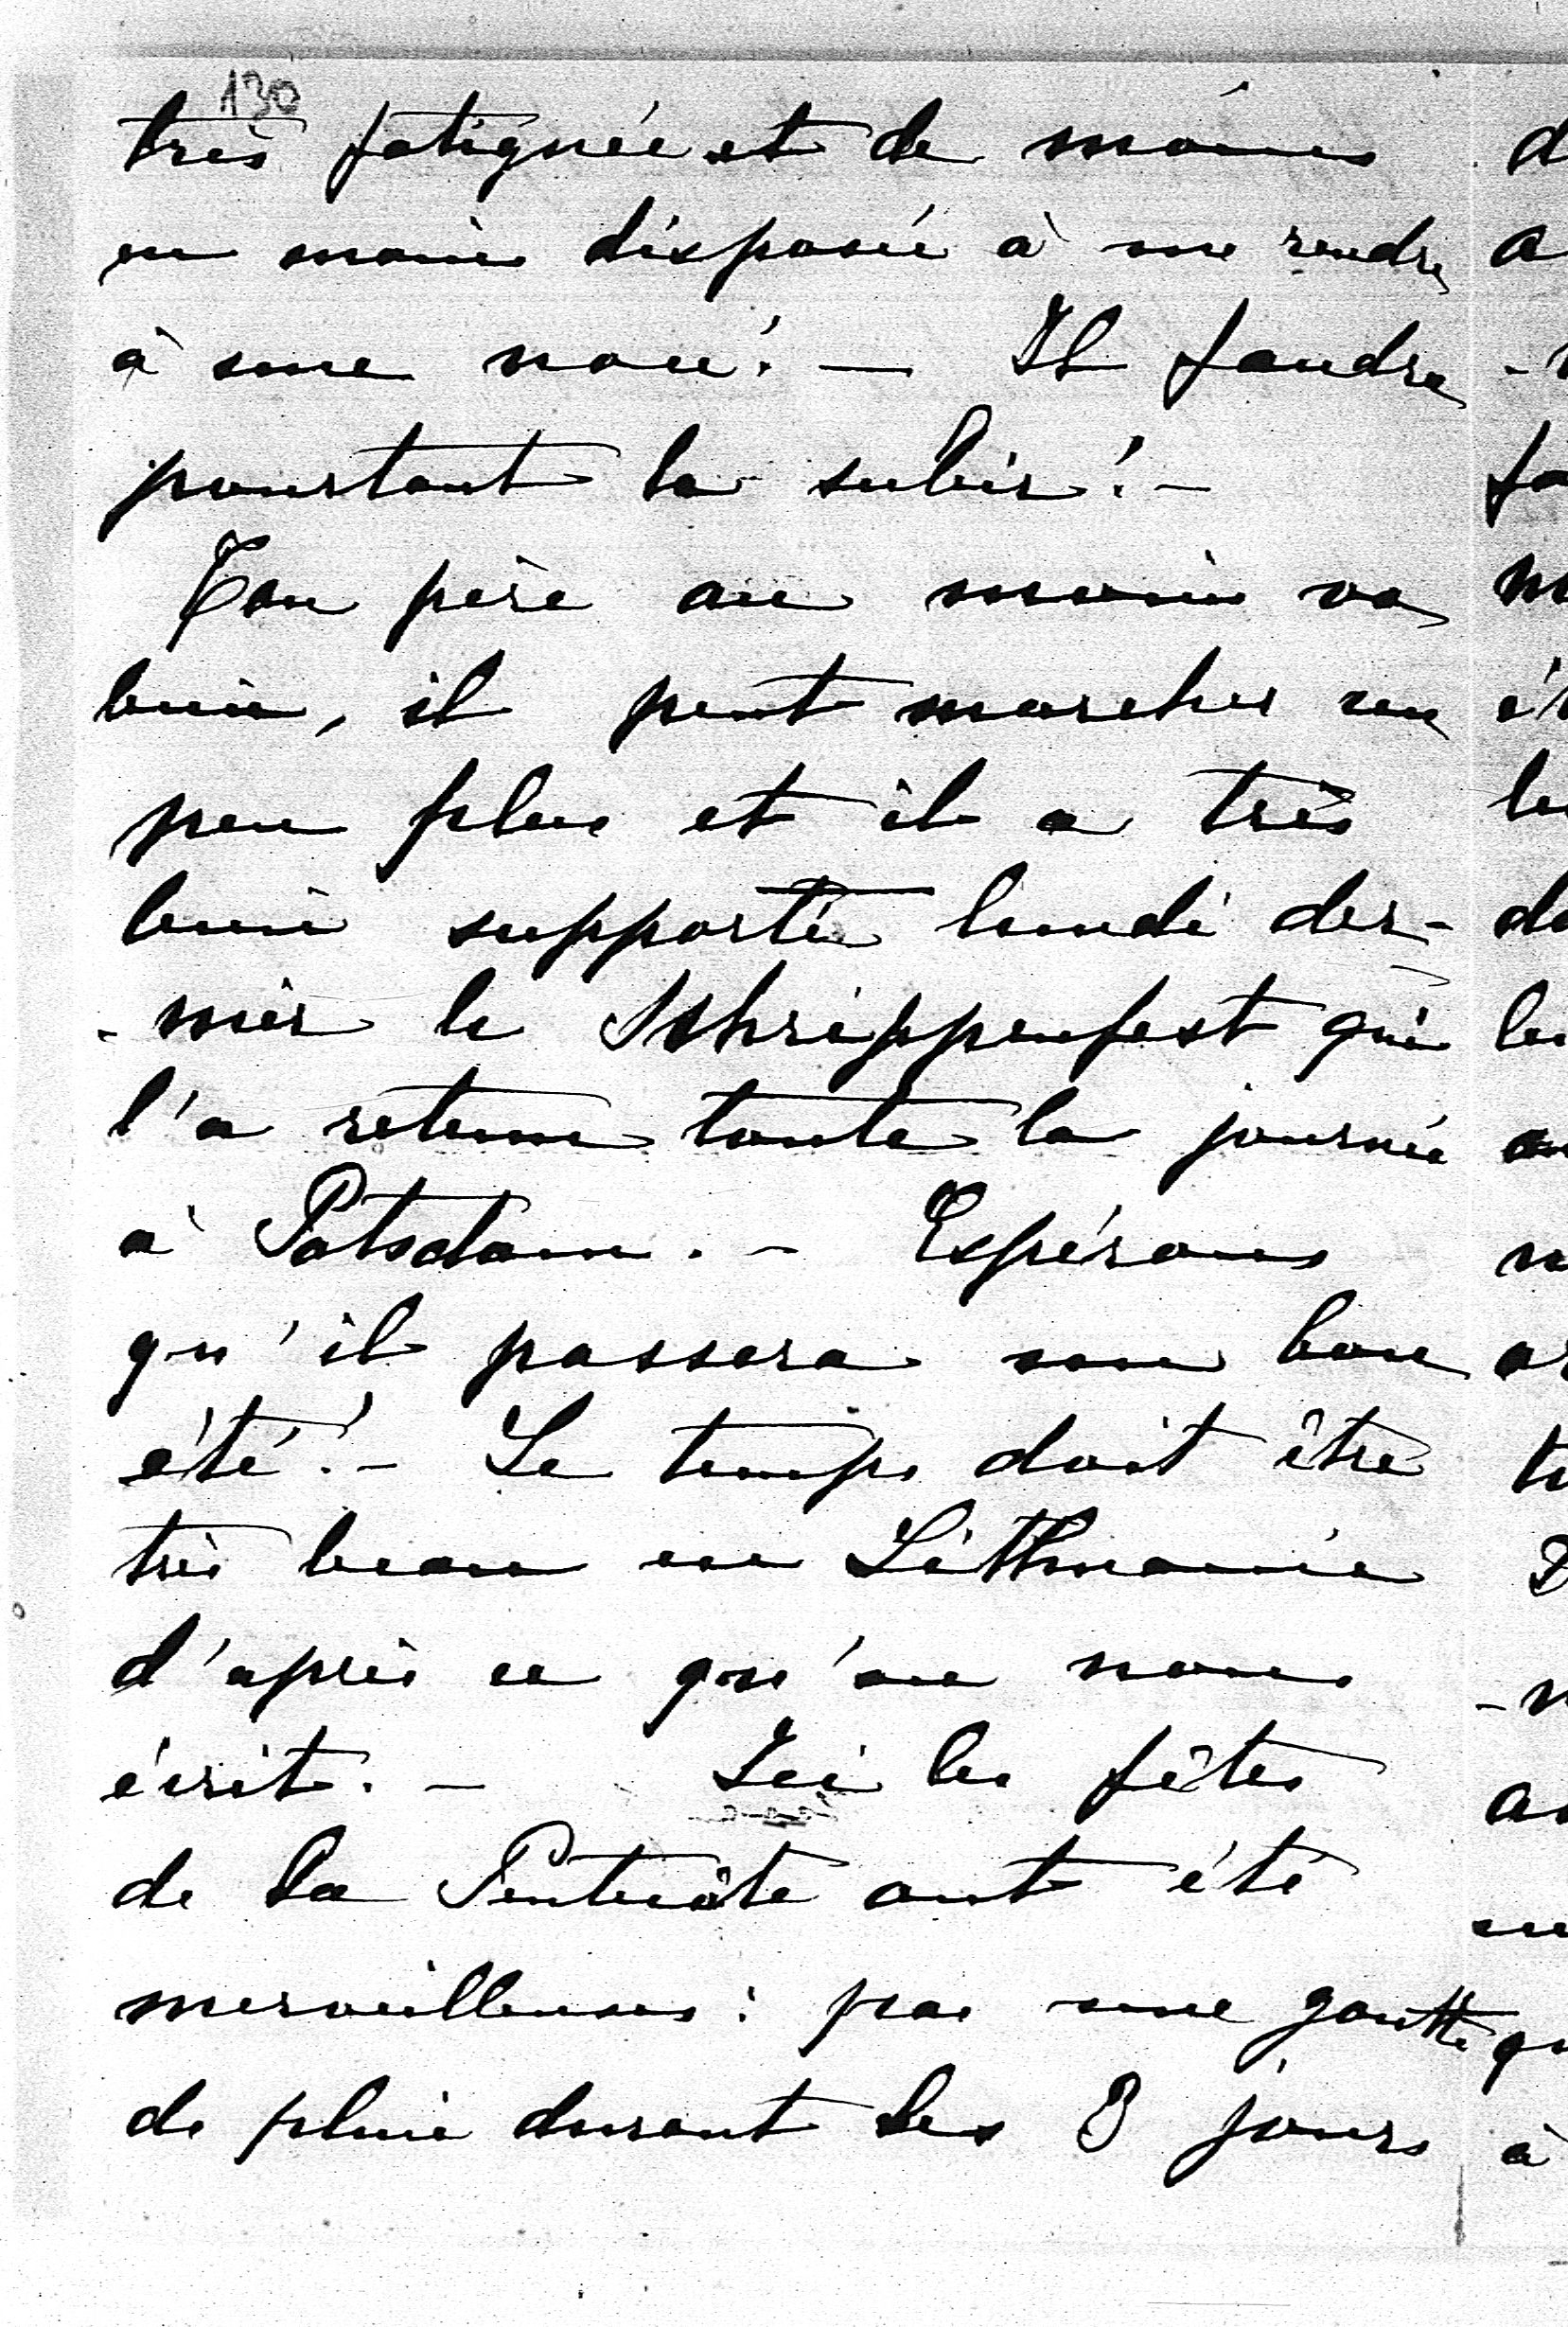 130
très fatiguée et de moins
en moins disposée à me rendre
à une noce! — Il faudra
pourtant la subir! -
Ton père au moins va
bien, il peut marcher un
peu plus et il a très
bien supporté lundi der-
-nier le Schrippenfest qui
l'a retenu toute la journée
à Potsdam. - Espérons
qu'il passera un bon
été! - Le temps doit être
très beau en Lithuanie
d'après ce qu'on nous
écrit. - Ici les fêtes
de la Pentecôte ont été
merveilleuses: pas une goutte
de pluie durant les 3 jours